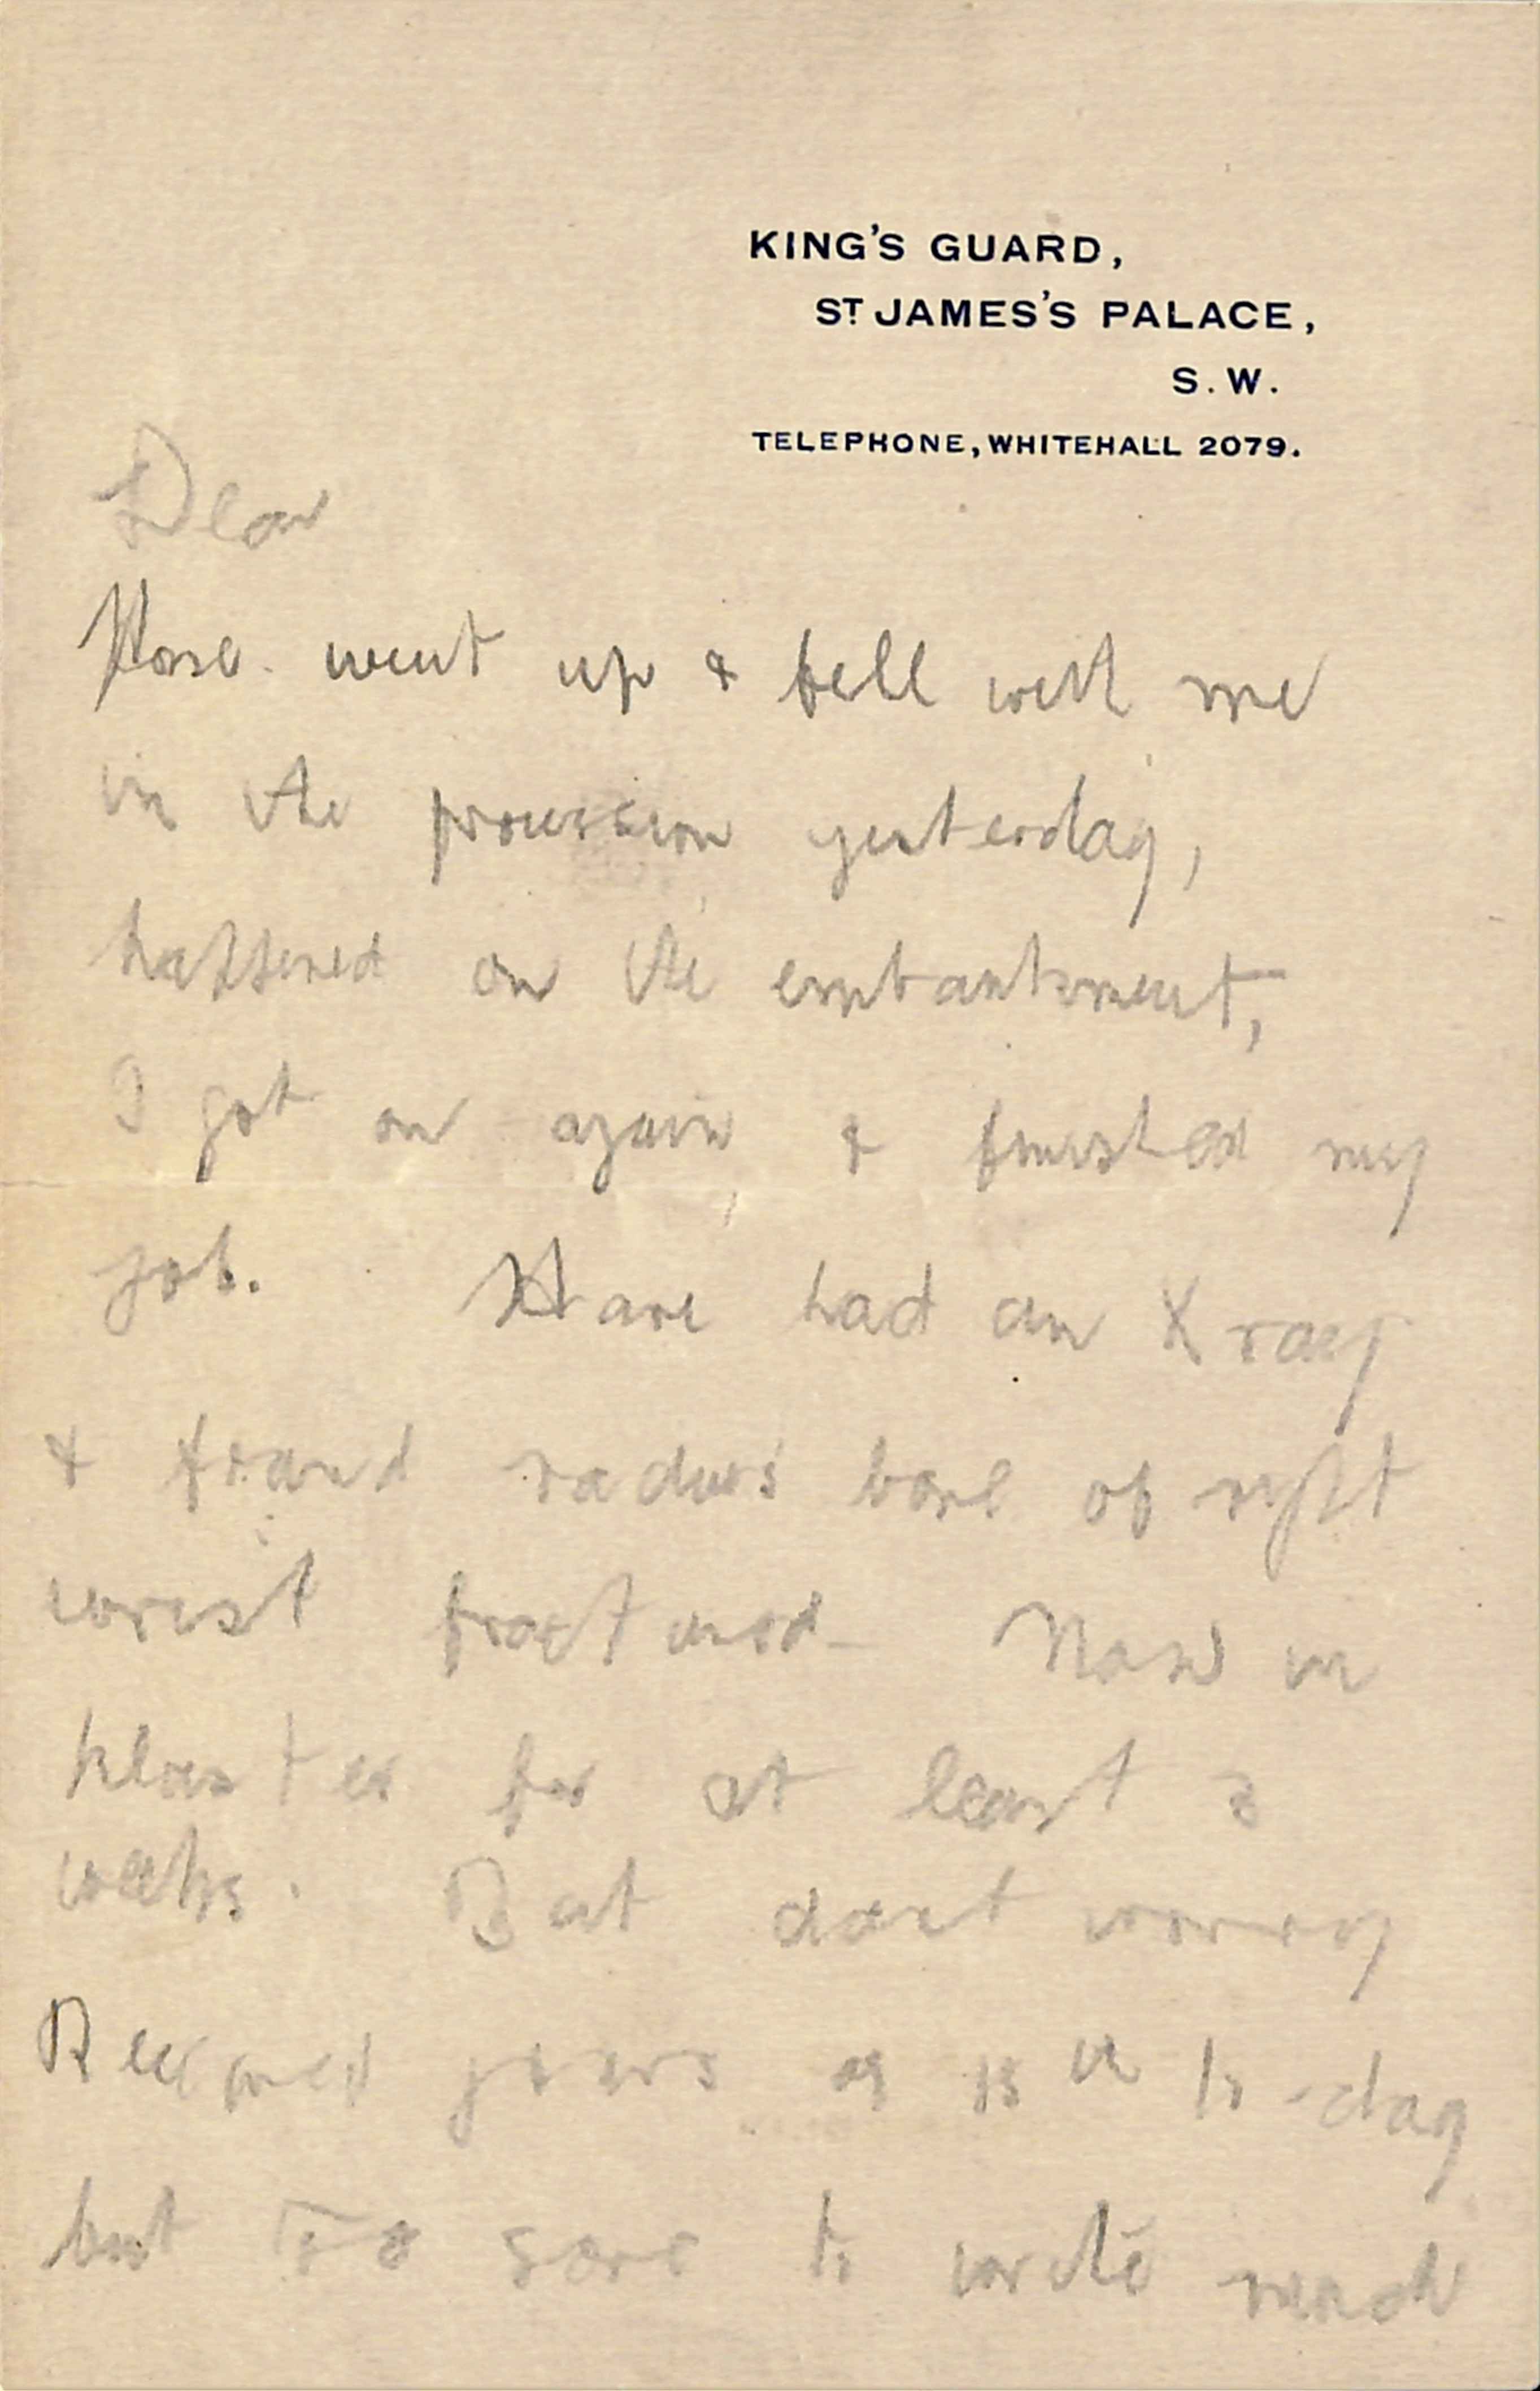 KING'S GUARD,
ST JAMES'S PALACE,
S.W.
TELEPHONE, WHITEHALL 2079.
Dear
Horse went up & fell with me
in the procession yesterday,
happened on the embankment,
I got on again, & finished my
job. Have had an X ray
& found radius bone of right
wrist fractured - Now in
plaster for at least 3
weeks. But dont worry
Received yours of 15th to-day
but too sore to write much